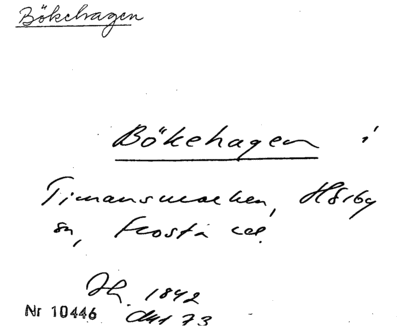 Bökehagen
Bökehagen i
Timansmarken, Hörby
sn, Frosta hd.
Jh. 1842
Nr 10446
akt 73